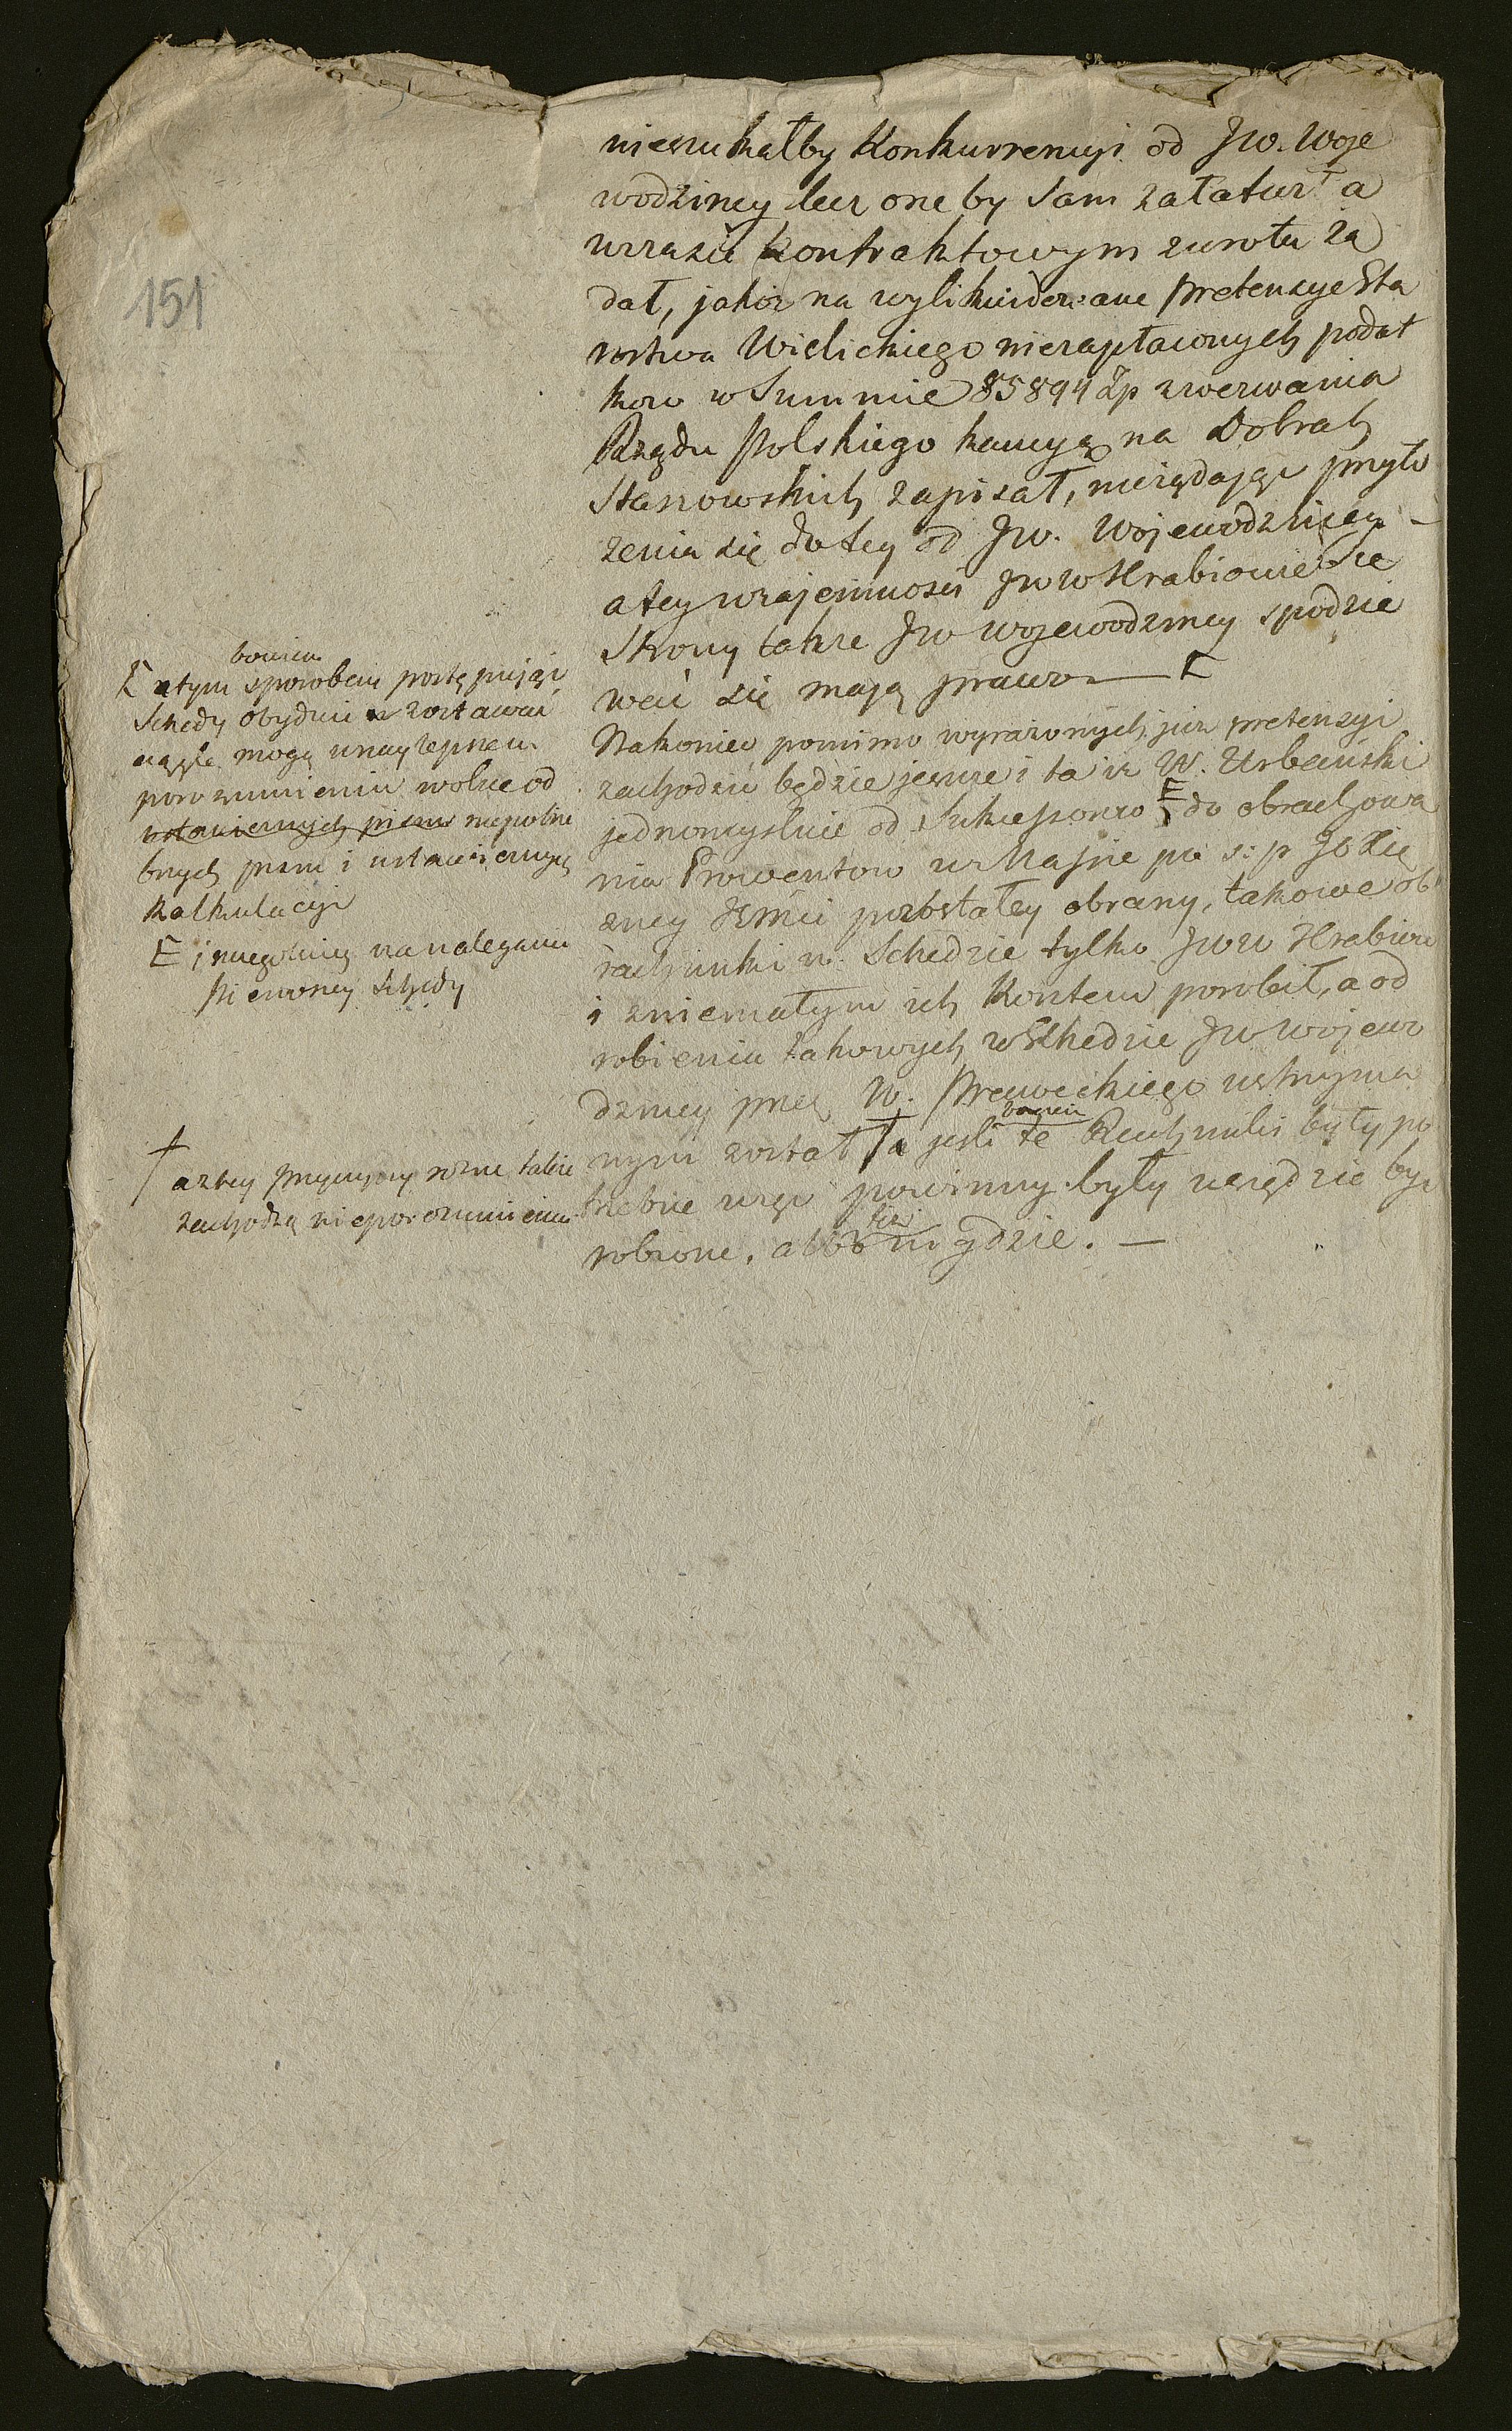 151
nieszukałby Konkurrencyi od JW. Woje
wodziney lecz one by sam załatwił a
w razie kontraktowym zwrotu żą
dał, jakoż na wylikwidowane pretensye Sta
rostwa Wielickiego niezapłaconych podat
kow w Summie 85894 Zp z wezwania
Rządu Polskiego kaucyą na Dobrach
Stanowskich zapisał, nieżądając przyło
żenia się do tey od JW. Wojewodziney —
a tey wzajemności JWW Hrabiowie ze
Strony także JW Wojewodziney spodzie
wać się mają prawo — [
Nakoniec pomimo wyrażonych już pretensyi
zachodzić będzie jeszcze i ta iż W. Urbański
jednomyślnie od Sukcessorow E do obrachowa
nia Prowentow w kassie po s: p Jo Xię
żney Jmci pozostałey obrany, takowe ob
rachunki w Schedzie tylko JWW Hrabiow
i z niemałym ich kosztem porobił, a od
robienia takowych w Schedzie JW Wojewo
dziney przez W. Praweckiego wstrzyma
nym został † a jeśli te Rachunki były po
bowiem
trzebne więc powinny były wszędzie być
robione, albo też nigdzie. —
bowiem
[ a tym sposobem postępując
Schedy obydwie zostawać
ciągle mogą w naylepszem
porozumieniu wolne od
ustawicznych pism niepotrze
bnych pism i ustawicznych
kalkulacyi
E i szczegolniey na naleganie
pierwszey Schedy
† a z tey przyczyny rożne takie
zachodzą nieporozumienia